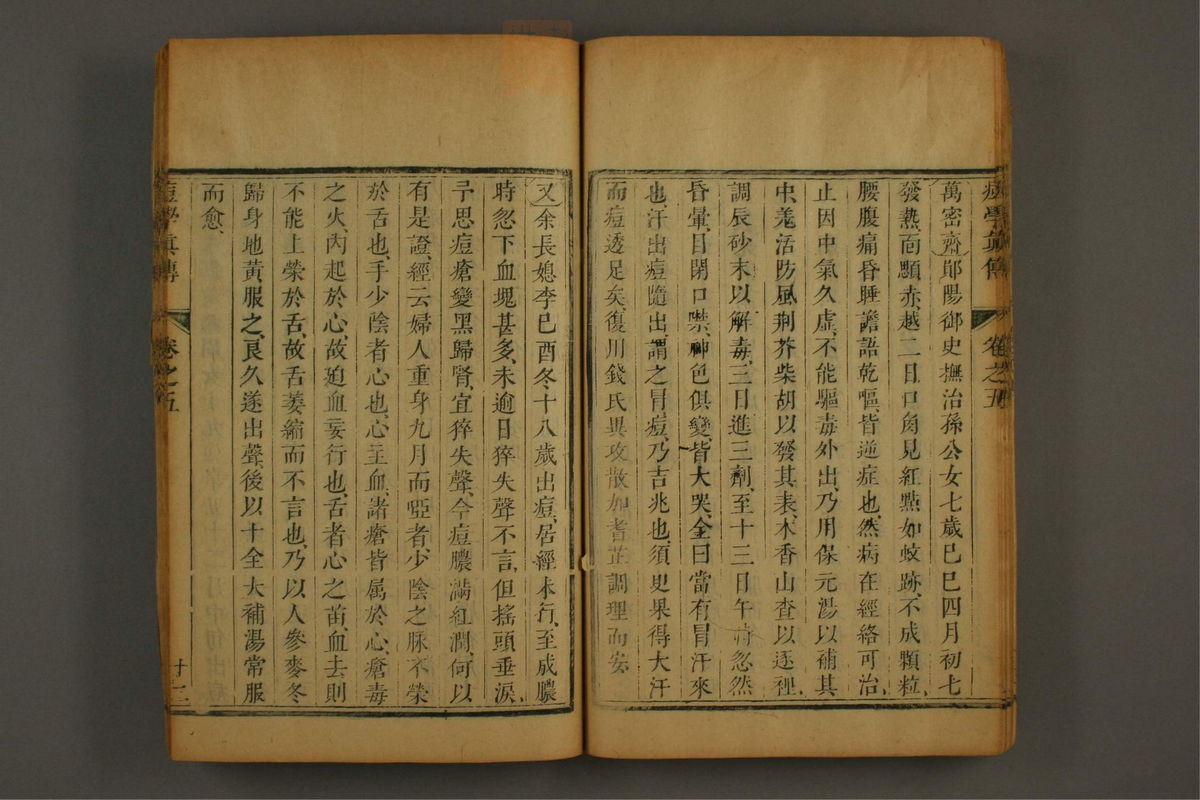 痘學真傳 卷之五
萬密齋鄖陽御史撫治孫公女七歲己巳四月初七
發熱面顋赤越二日口角見紅點如蚊跡不成顆粒、
腰腹痛昏睡譫語乾嘔、皆逆症也、然病在經絡可治、
止因中氣久虛、不能驅毒外出、乃用保元湯以補其
中、羗活防風荆芥柴胡以發其表、木香山查以逐裡、
調辰砂末以解毒、三日進三劑、至十三日午時忽然
昏暈、目閉口噤、神色俱變、皆大哭、金曰當有冐汗來
也、汗出痘隨出、謂之冐痘、乃吉兆也、須臾果得大汗
而痘透足矣、復用錢氏異攻散加耆芷調理而安
又余長媳李己酉冬十八歲出痘、居經未行、至成膿
時忽下血塊甚多、未逾日猝失聲不言、但搖頭垂淚、
予思痘瘡變黑歸腎、宜猝失聲、今痘膿滿紅潤、何以
有是證、經云婦人重身九月而啞者、少陰之脉不榮
於舌也、手少陰者心也、心主血、諸瘡皆属於心、瘡毒
之火、內起於心、故廹血妄行也、舌者心之苗、血去則
不能上榮於舌、故舌萎縮而不言也、乃以人參麥冬
歸身地黃服之、良久遂出聲、後以十全大補湯常服
而愈、
痘學真傳 卷之五 廿二